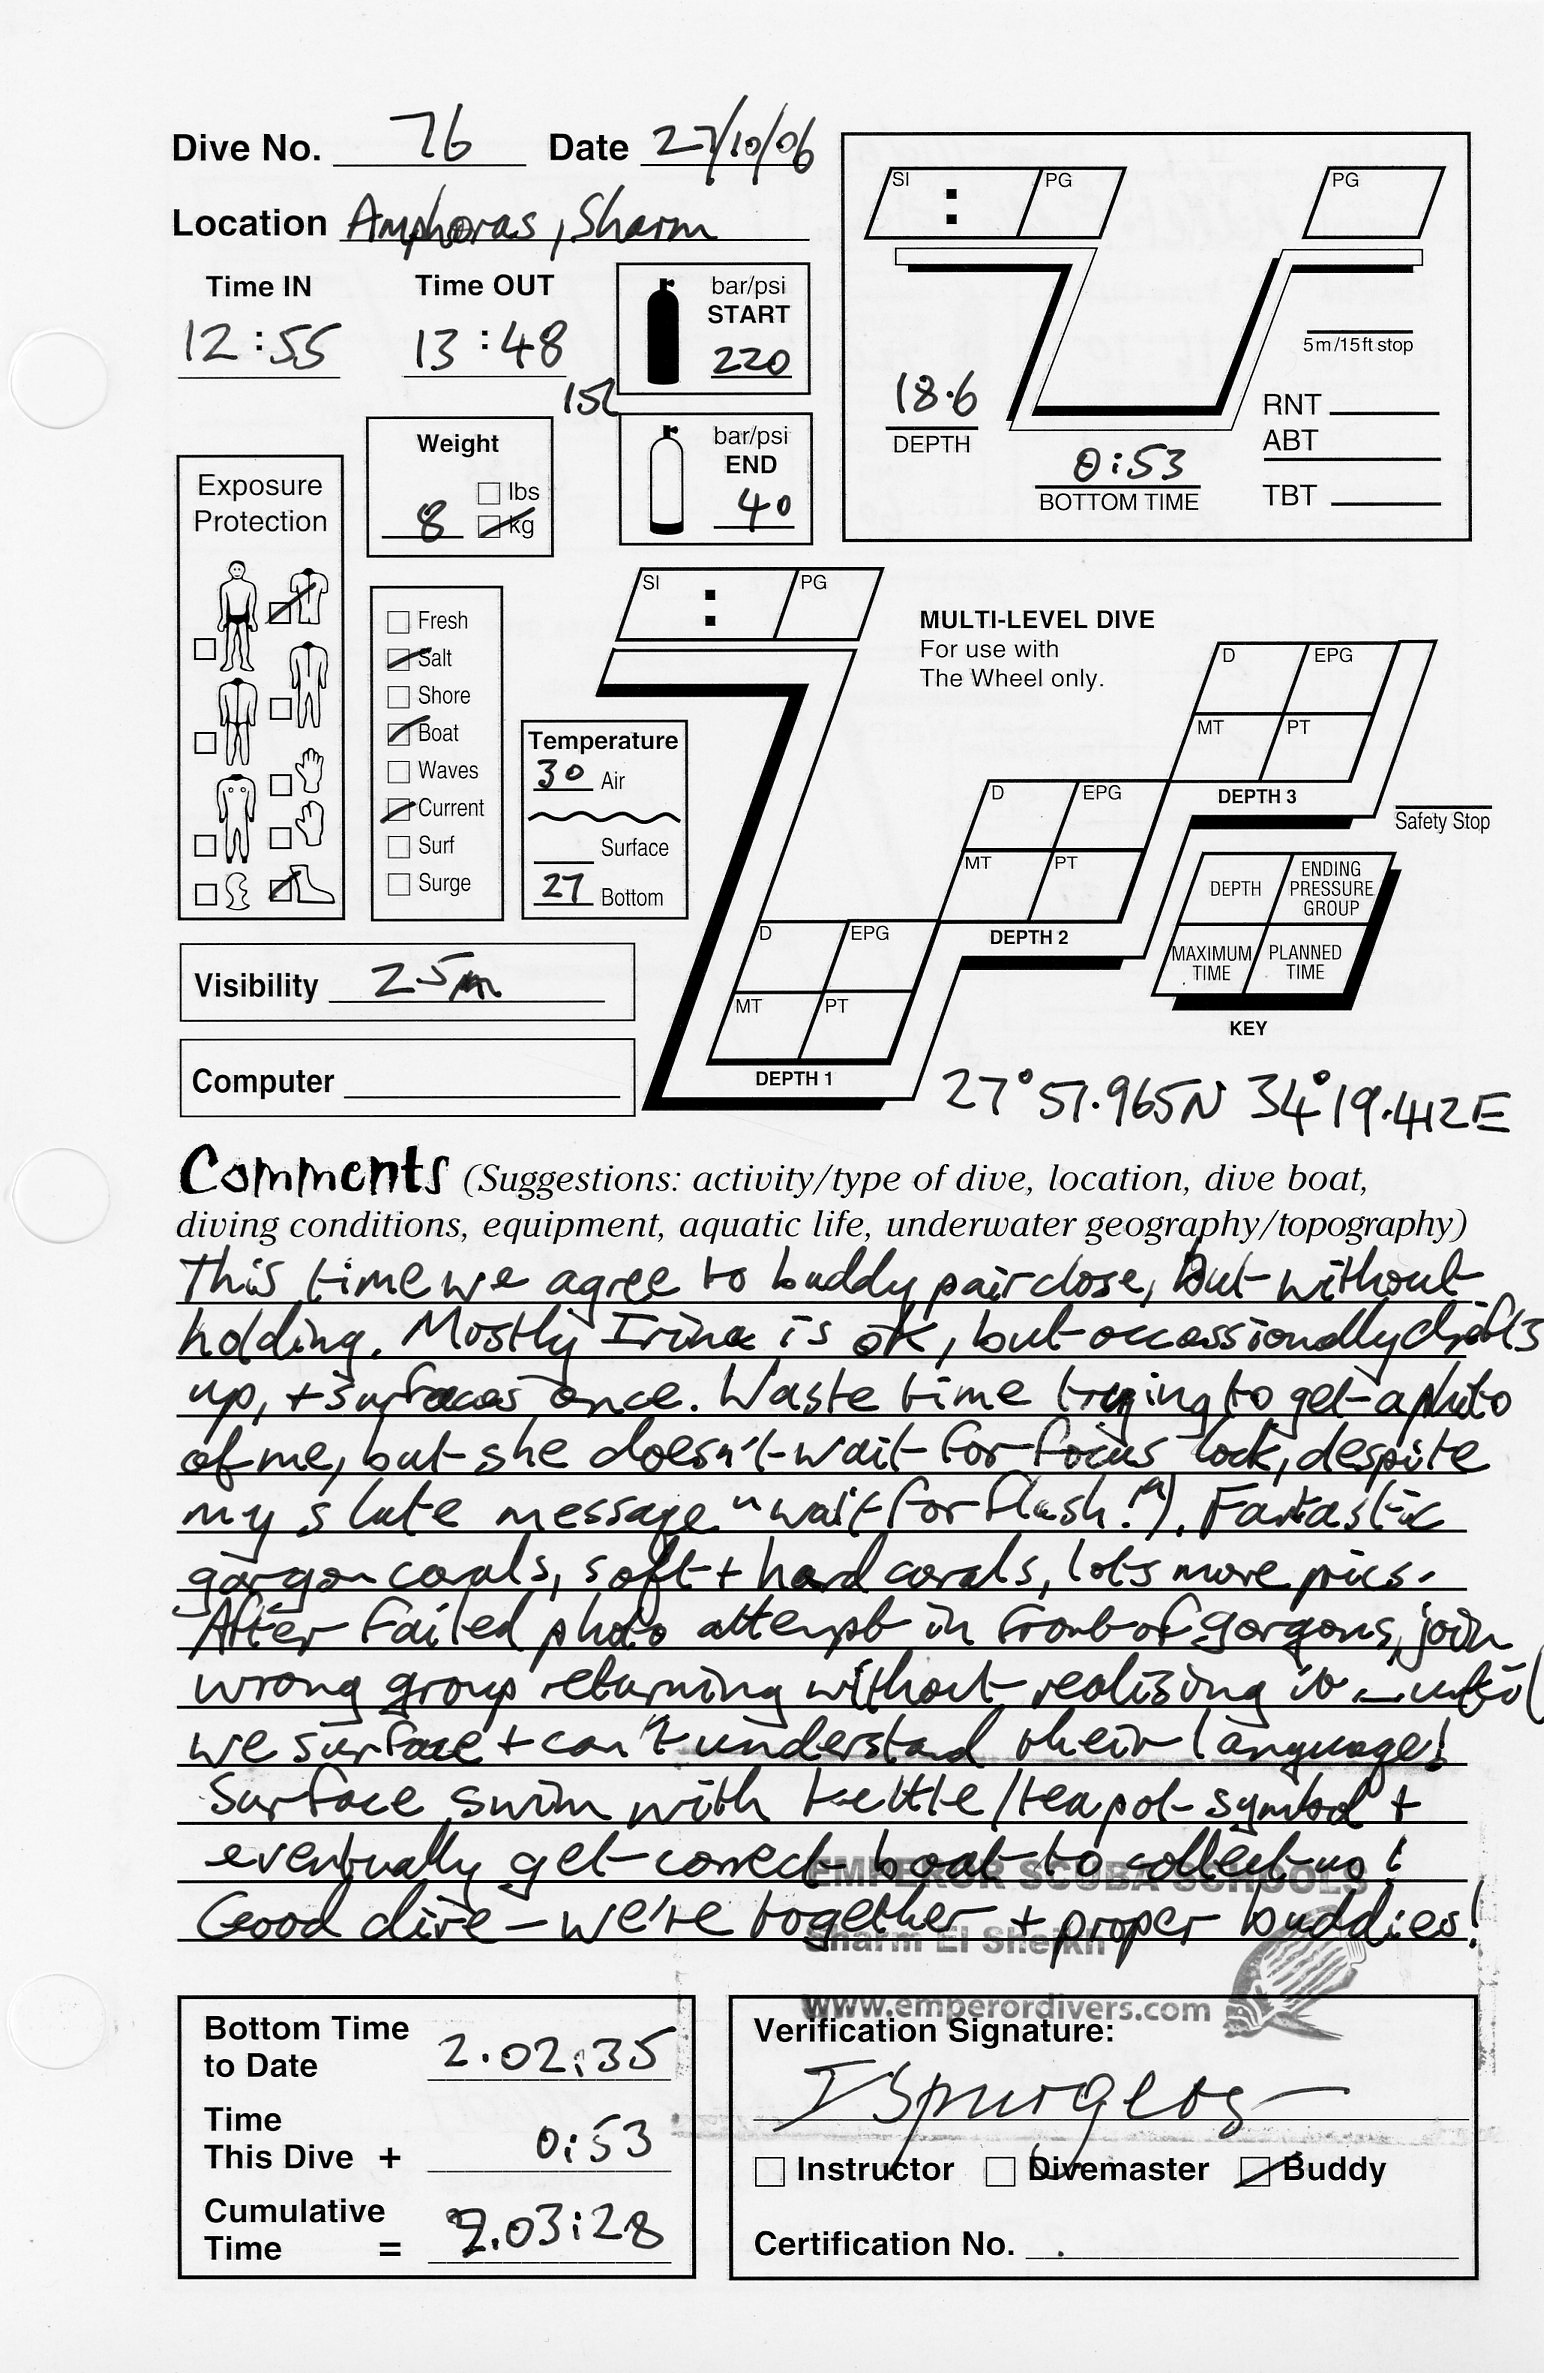 Dive No. 76 Date 27/10/06
Location Amphoras, Sharm
Time IN Time OUT
12:55 13:48
bar/psi
START
220
15L
bar/psi
END
40
Weight
lbs
8 kg
SI : PG PG
5m/15ft stop
18.6
DEPTH
0:53
BOTTOM TIME
RNT
ABT
TBT
Exposure
Protection
Fresh
Salt
Shore
Boat
Waves
Current
Surf
Surge
Temperature
30 Air
Surface
27 Bottom
SI : PG
MULTI-LEVEL DIVE
For use with
The Wheel only.
D EPG
MT PT
DEPTH 3
D EPG
MT PT
DEPTH 2
D EPG
MT PT
DEPTH 1
Safety Stop
DEPTH ENDING PRESSURE GROUP
MAXIMUM TIME PLANNED TIME
KEY
Visibility 25m
Computer
27°51.965N 34°19.412E
Comments (Suggestions: activity/type of dive, location, dive boat,
diving conditions, equipment, aquatic life, underwater geography/topography)
This time we agree to buddy pair close, but without
holding. Mostly Irina is ok, but occassionally drifts
up, + surfaces once. Waste time trying to get a photo
of me, but she doesn't wait for focus lock, despite
my slate message "wait for flash!"). Fantastic
gorgon corals, soft + hard corals, lots more pics.
After failed photo attempt in front of gorgons, join
wrong group returning without realising it – until
we surface + can't understand their language!
Surface swim with kettle/teapot symbol +
eventually get correct boat to collect us!
Good dive – we're together + proper buddies!
EMPEROR SCUBA SCHOOLS
Sharm El Sheikh
www.emperordivers.com
Bottom Time
to Date 2.02:35
Time
This Dive + 0:53
Cumulative
Time = 2.03:28
Verification Signature:
I Spurgeon
Instructor Divemaster Buddy
Certification No.